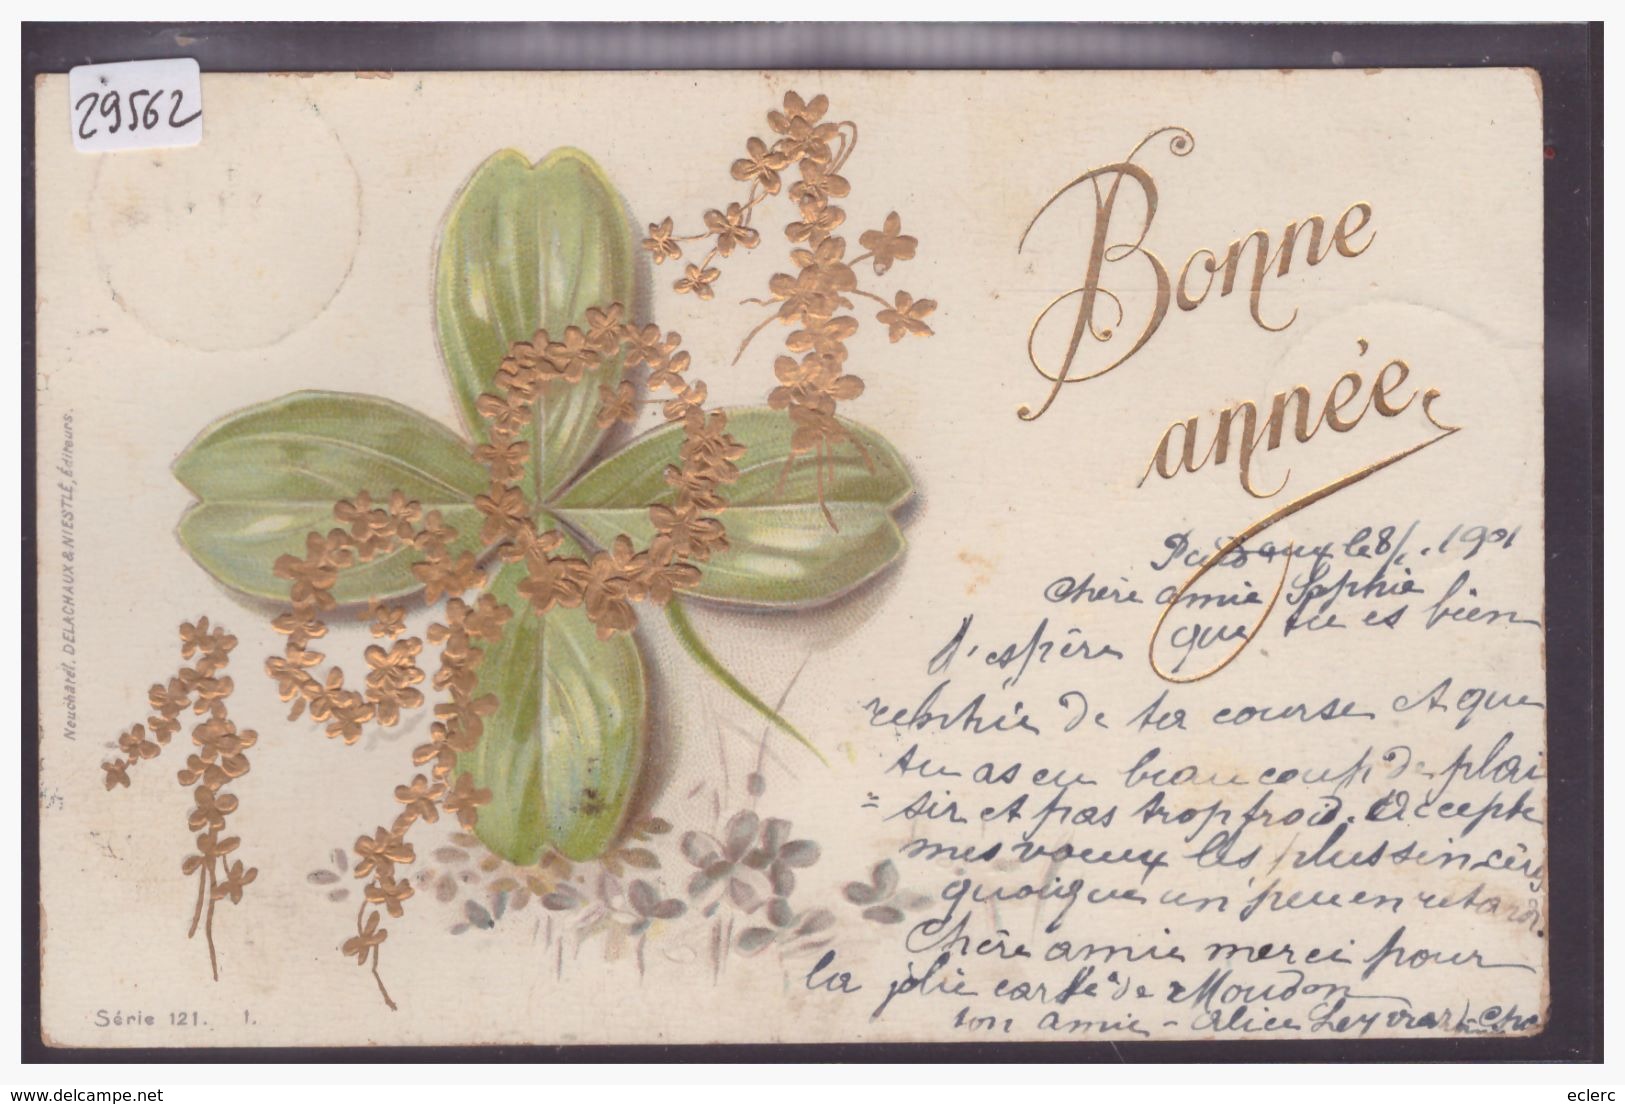 29562
Bonne
année
Neuchatel. DELACHAUX & NIESTLÉ, Éditeurs.
le 8/1. 1901
Chère amie Sophie
J'espère que tu es bien
rentrée de ta course et que
tu as eu beaucoup de plai
=sir et pas trop froid. Accepte
mes voeux les plus sincères
quoique un peu en retard.
Chère amie merci pour
la jolie carte de Moudon
ton amie - Alice
Série 121. 1.
www.delcampe.net
eclerc